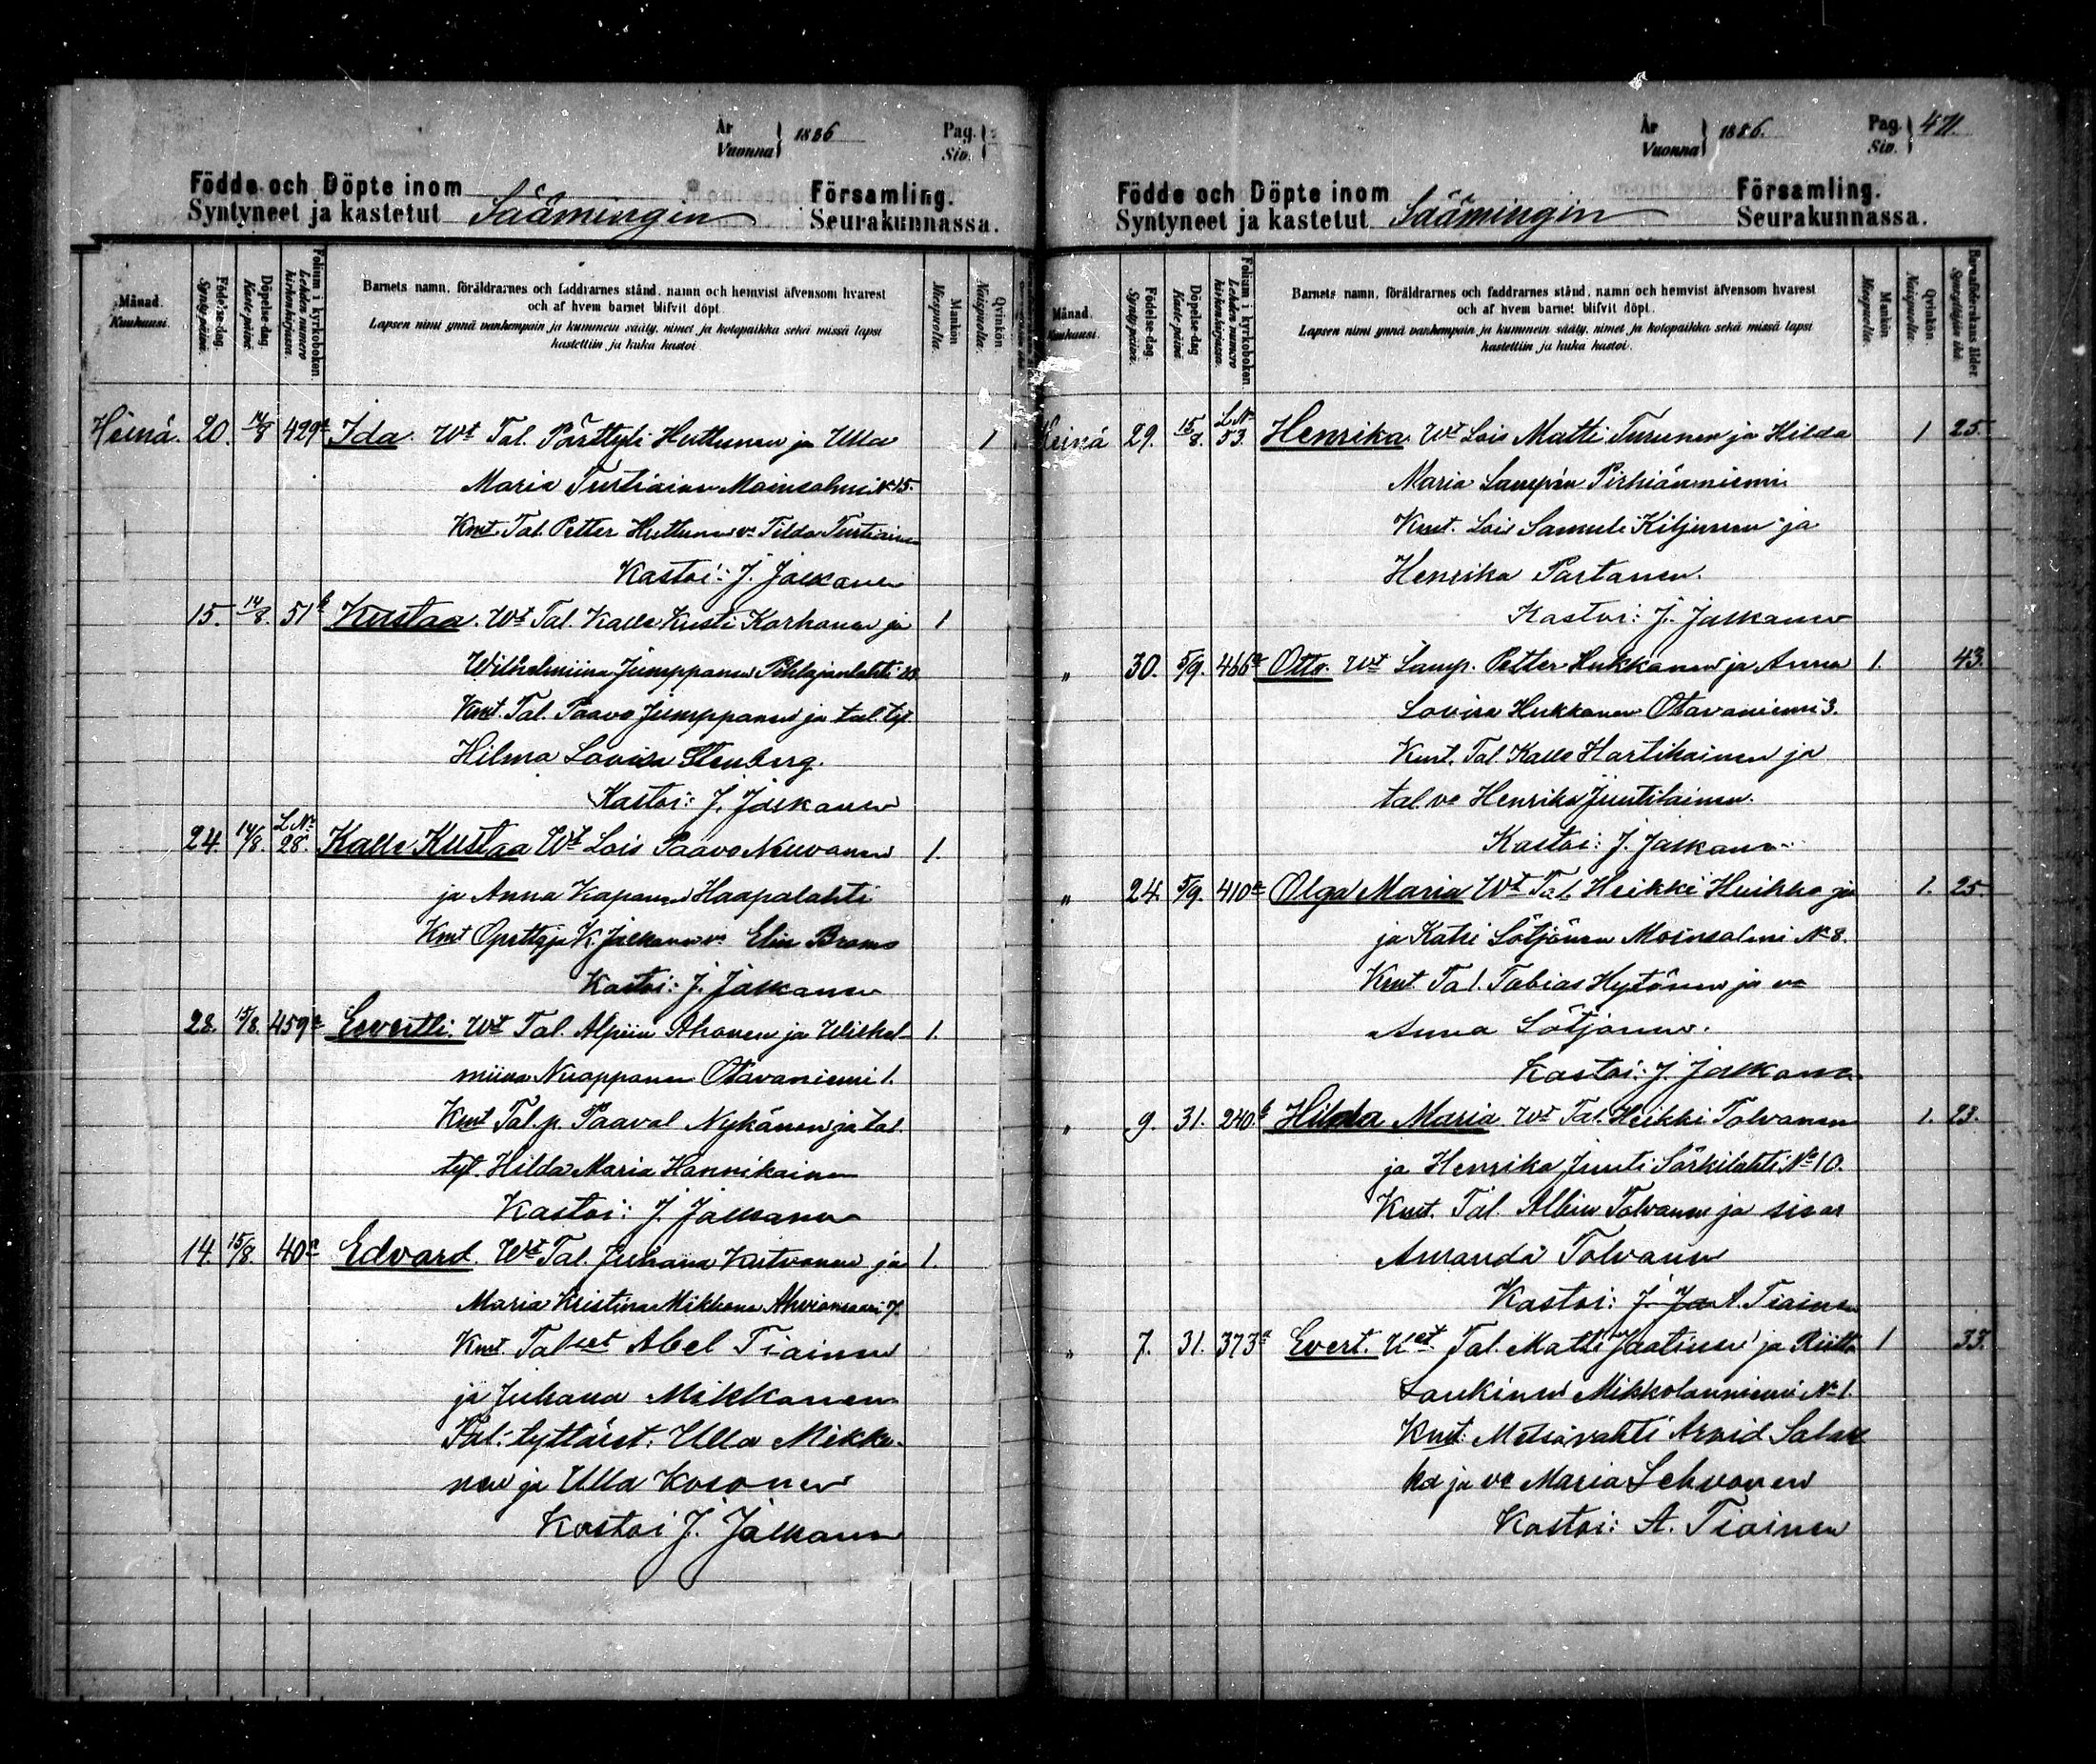 År
Vuonna } 1886 Pag.
Siv.
Födde och Döpte inom Församling.
Syntyneet ja kastetut Säämingin Seurakunnassa.
Månad. Kuukausi.
Födelse-dag. Synty-päivä.
Döpelse-dag. Kaste-päivä.
Folium i kyrkoboken. Lehden numero kirkonkirjassa.
Barnets namn, föräldrarnes och faddrarnes stånd, namn och hemvist äfvensom hvarest
och af hvem barnet blifvit döpt.
Lapsen nimi ynnä vanhempain ja kummein sääty, nimet ja kotopaikka sekä missä lapsi
kastettiin ja kuka kastoi.
Mankön Miespuolta.
Qvinkön. Naispuolta.
Heinä. 20. 14/8 429a Ida. Wt Tal. Pärttyli Huttunen ja Ulla 1
Maria Turtiainen Moinsalmi No 15.
Kmt. Tal. Petter Huttunen va Tilda Turtiainen
Kastoi: J. Jalkanen
15. 14/8. 51b Kustaa. Wt Tal. Kalle Kusti Karhanen ja 1
Wilhelmiina Jumppanen Pihlajanlahti
Kmt. Tal. Paavo Jumppanen ja tal. tyt
Hilma Lovisa Stenberg.
Kastoi: J. Jalkanen
24. 14/8. L. No 28. Kalle Kustaa Wt Lois Paavo Neuvonen 1.
ja Anna Kapanen Haapalahti
Kmt Opettaja K. Jalkanen va Elin Brams
Kastoi: J. Jalkanen
28. 15/8. 459a Eevertti. Wt Tal. Alpiin Ahonen ja Wilhel- 1.
miina Nuopponen Otavaniemi 1.
Kmt Tal. p. Paaval Nykänen ja tal.
tyt. Hilda Maria Hannikainen
Kastoi: J. Jalkanen
14. 15/8. 40a Edvard. Wt Tal. Juhana Kutvonen ja 1.
Maria Kristina Mikkonen Ahvionsaari 7.
Kmt Talset Abel Tiainen
ja Juhana Mikkonen
Tal: tyttäret: Ulla Mikko-
nen ja Ulla Kosonen
Kastoi J. Jalkanen
År
Vuonna } 1886. Pag.
Siv. } 471.
Födde och Döpte inom Församling.
Syntyneet ja kastetut Säämingin Seurakunnassa.
Månad. Kuukausi.
Födelse-dag. Synty-päivä.
Döpelse-dag Kaste-päivä
Folium i kyrkoboken. Lehden numero kirkonkirjassa.
Barnets namn, föräldrarnes och faddrarnes stånd, namn och hemvist äfvensom hvarest
och af hvem barnet blifvit döpt.
Lapsen nimi ynnä vanhempain ja kummein sääty, nimet ja kotopaikka sekä missä lapsi
kastettiin ja kuka kastoi.
Mankön Miespuolta.
Qvinkön. Naispuolta.
Barnaföderskans ålder. Synnyttäjän ikä.
Heinä 29. 15/8. L. No 53. Henrika. Wt Lois Matti Turunen ja Hilda 1 25.
Maria Lampén Pirhiänniemi
Kmt. Lois Samuli Kiljunen ja
Henrika Partanen.
Kastoi: J. Jalkanen
" 30. 5/9. 466a Otto. Wt Lamp. Petter Hukkanen ja Anna 1. 43.
Lovisa Hukkanen Otavaniemi 3.
Kmt. Tal. Kalle Hartikainen ja
tal. va Henrika Juutilainen.
Kastoi: J. Jalkanen
" 24. 5/9. 410a Olga Maria Wt Tal. Heikki Huikko ja 1. 25.
ja Katri Lötjönen Moinsalmi No 8.
Kmt. Tal. Tobias Hytönen ja va
Anna Lötjönen.
Kastoi: J. Jalkanen
" 9. 31. 240b Hilda Maria. Wt Tal. Heikki Tolvanen 1. 23.
ja Henrika Juuti Särkilahti No 10.
Kmt. Tal. Albin Tolvanen ja sisar
Amanda Tolvanen
Kastoi: J. Ja A. Tiainen
" 7. 31. 373a Evert. Wet. Tal. Matti Jaatinen ja Riitta 1 33.
Laukinen Mikkolanniemi No 1.
Kmt. Metsävahti Arvid Salak
ka ja va Maria Lehvonen
Kastoi: A. Tiainen